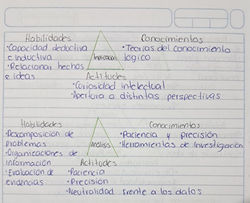 Habilidades Conocimientos
•Capacidad deductiva •Teorias del conocimiento
e inductiva Inducción lógico
•Relacionar hechos
e ideas Actitudes
•Curiosidad intelectual
•Apertura a distintas perspectivas
Habilidades Conocimientos
•Descomposición de •Paciencia y precisión
problemas Análisis •Herramientas de Investigación
•Organizaciones de
información Actitudes
•Evaluación de •Paciencia
evidencias •Precisión
•Neutralidad frente a los datos